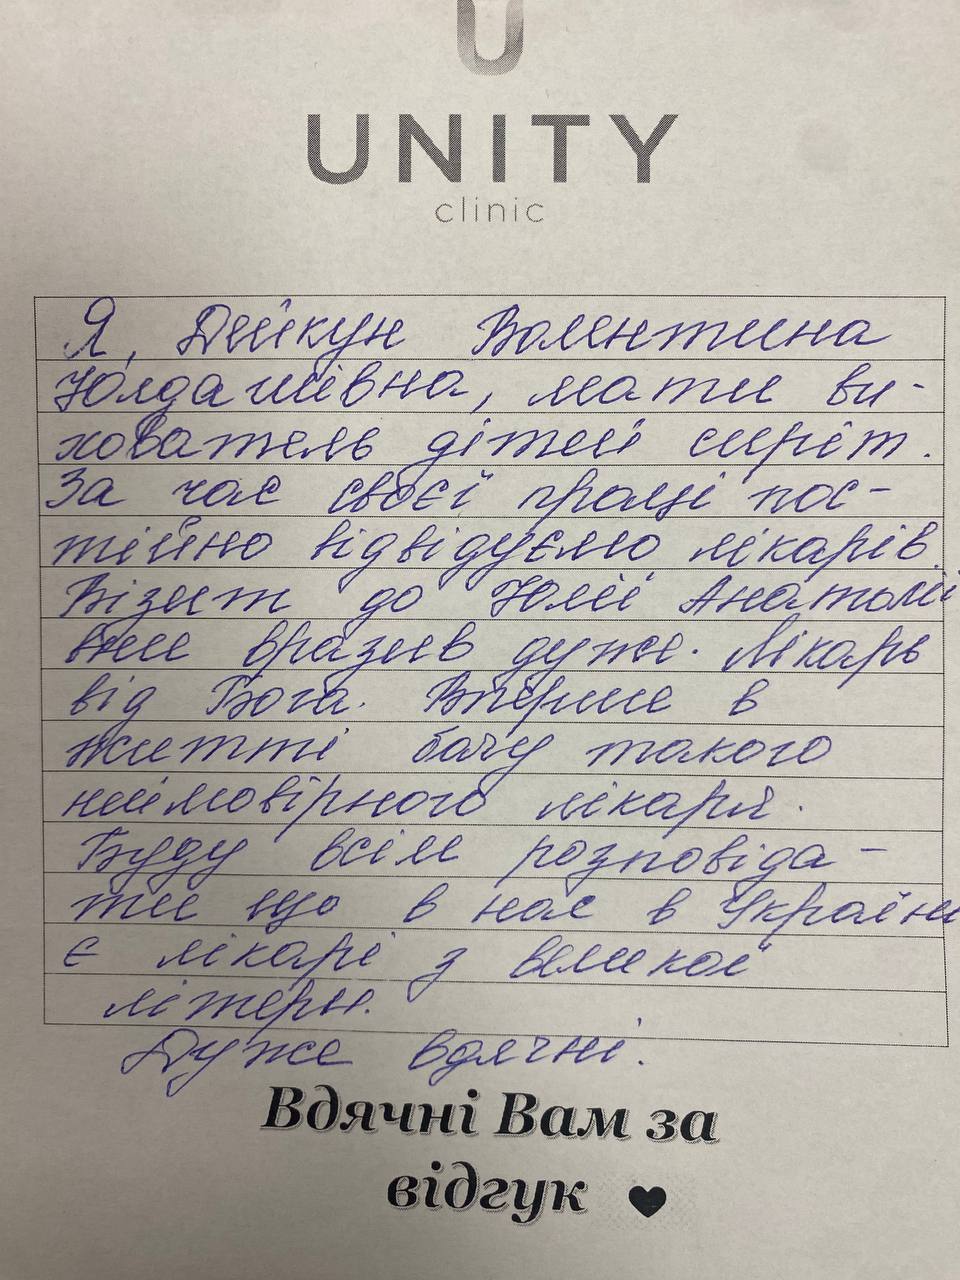 U
UNITY
clinic
Я, Дейкун Валентина
Юлдашівна, мати ви-
хователь дітей сиріт.
За час своєї праці пос-
тійно відвідуємо лікарів.
Візит до Юлії Анатолії
вни вразив дуже. Лікарь
від Бога. Вперше в
житті бачу такого
неймовірного лікаря.
Буду всім розповіда-
ти що в нас в Україні
є лікарі з великої
літери.
Дуже вдячні.
Вдячні Вам за
відгук